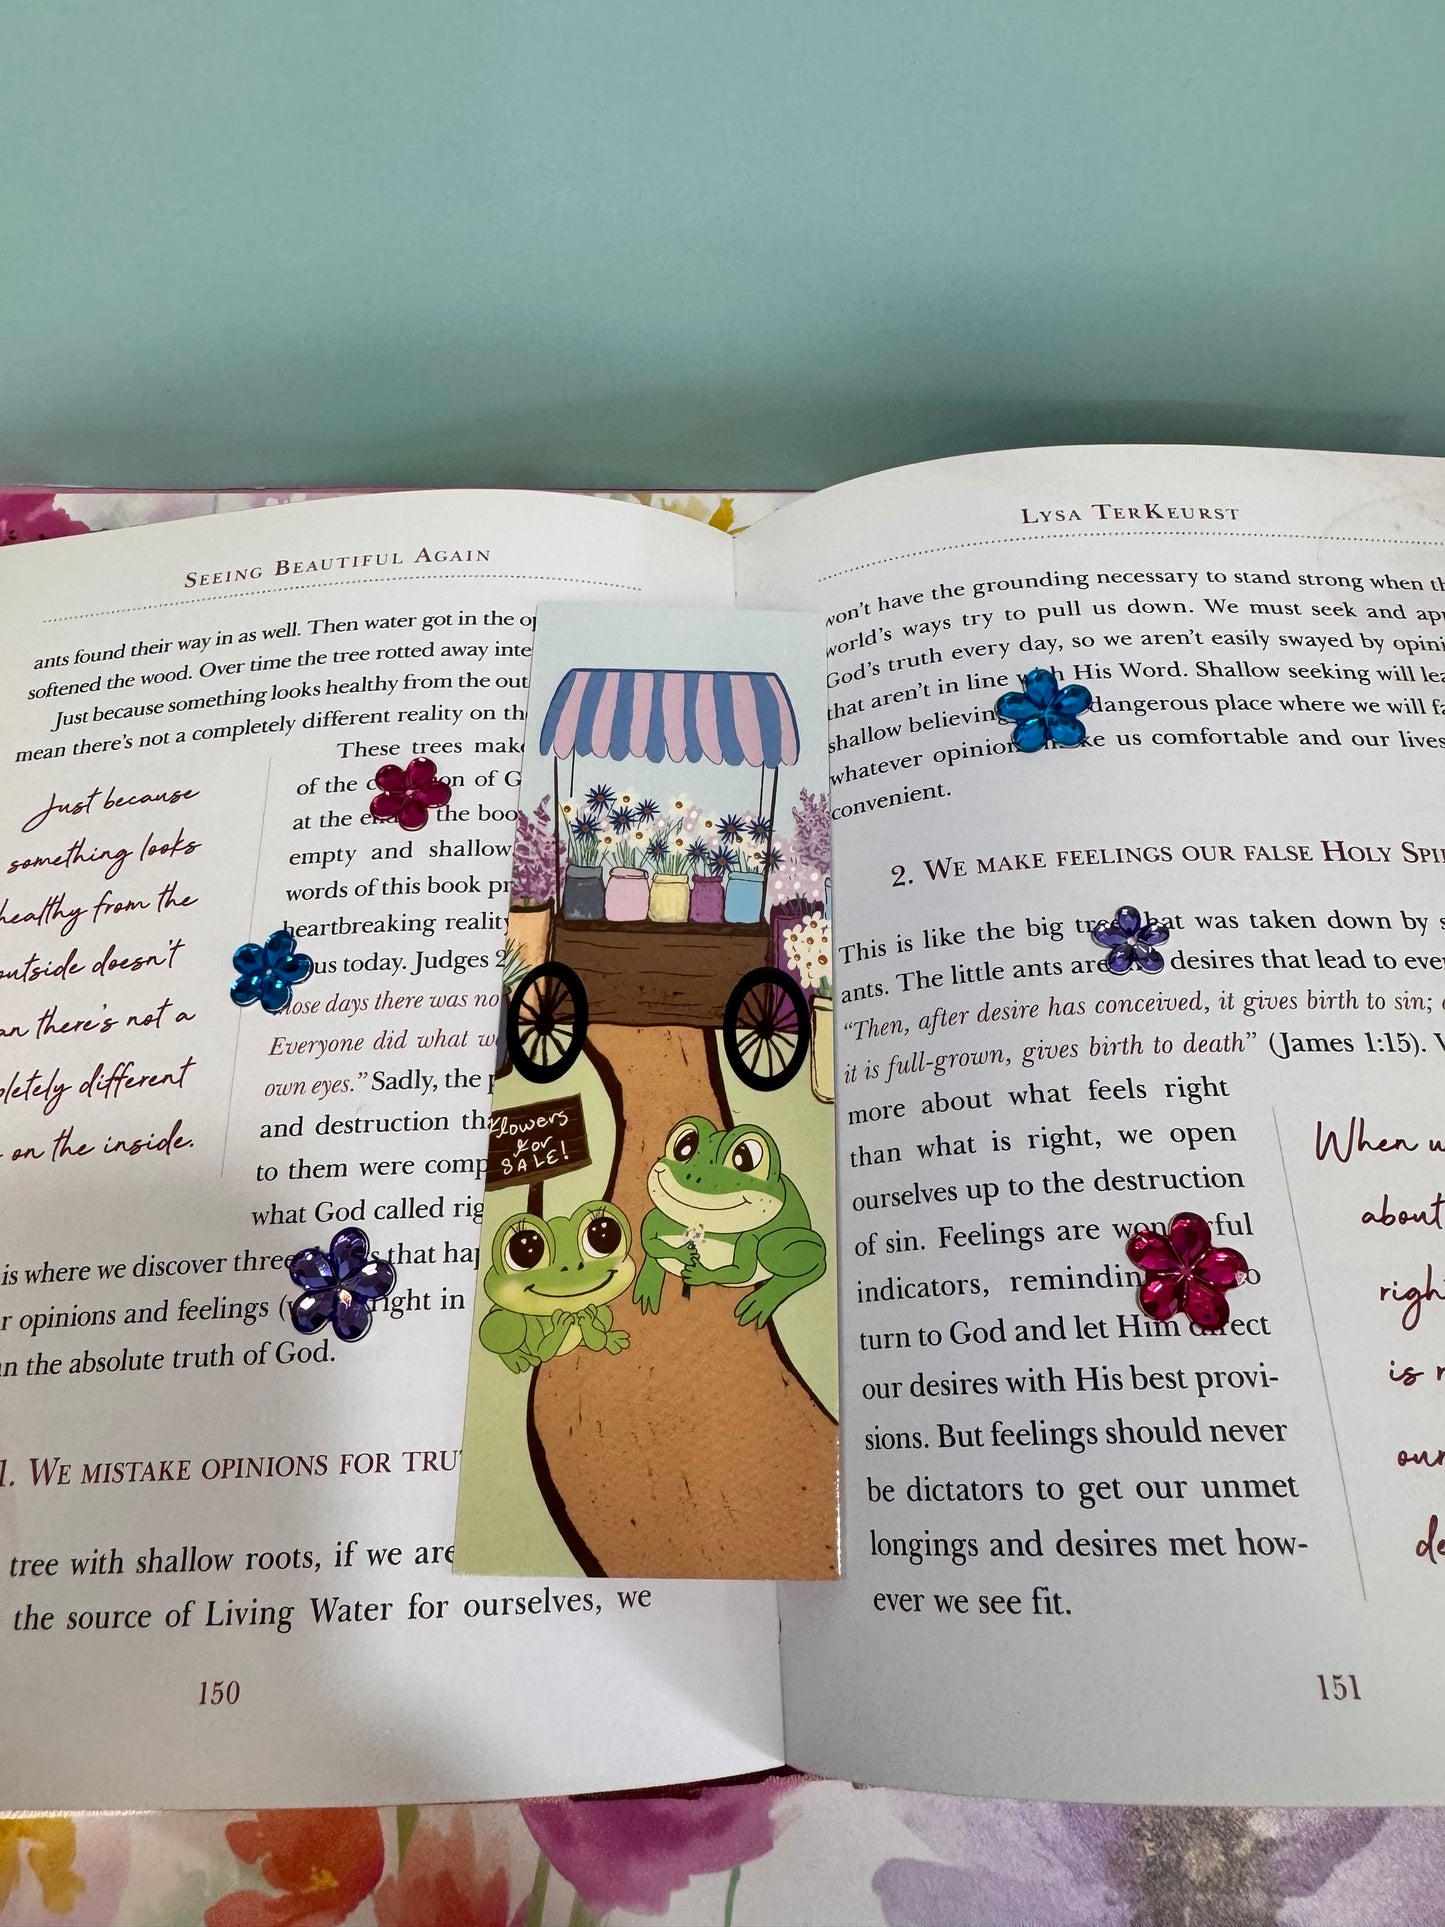 SEEING BEAUTIFUL AGAIN
ants found their way in as well. Then water got in the
softened the wood. Over time the tree rotted away
Just because something looks healthy from the out
mean there's not a completely different reality on
These trees make
of the of G
at the the
empty and shallow
words of this book
heartbreaking reality
us today. Judges 2
those days there was no
Everyone did what
own eyes." Sadly, the
and destruction
to them were
what God called
Just because
something looks
healthy from the
outside doesn't
there's not a
different
on the inside.
is where we discover three that
opinions and feelings ( right in
the absolute truth of God.
1. WE MISTAKE OPINIONS FOR
tree with shallow roots, if we are
the source of Living Water for ourselves, we
150
Flowers
for
SALE!
LYSA TERKEURST
won't have the grounding necessary to stand strong when
world's ways try to pull us down. We must seek and
God's truth every day, so we aren't easily swayed by
that aren't in line with His Word. Shallow seeking will
shallow believing dangerous place where we will
whatever us comfortable and our lives
convenient.
2. WE MAKE FEELINGS OUR FALSE HOLY
This is like the big tree that was taken down by
ants. The little ants are desires that lead to
"Then, after desire has conceived, it gives birth to sin;
it is full-grown, gives birth to death" (James 1:15).
more about what feels right
than what is right, we open
ourselves up to the destruction
of sin. Feelings are wonderful
indicators,
turn to God and let Him direct
our desires with His best provi-
sions. But feelings should never
be dictators to get our unmet
longings and desires met how-
ever we see fit.
When
about
is
151